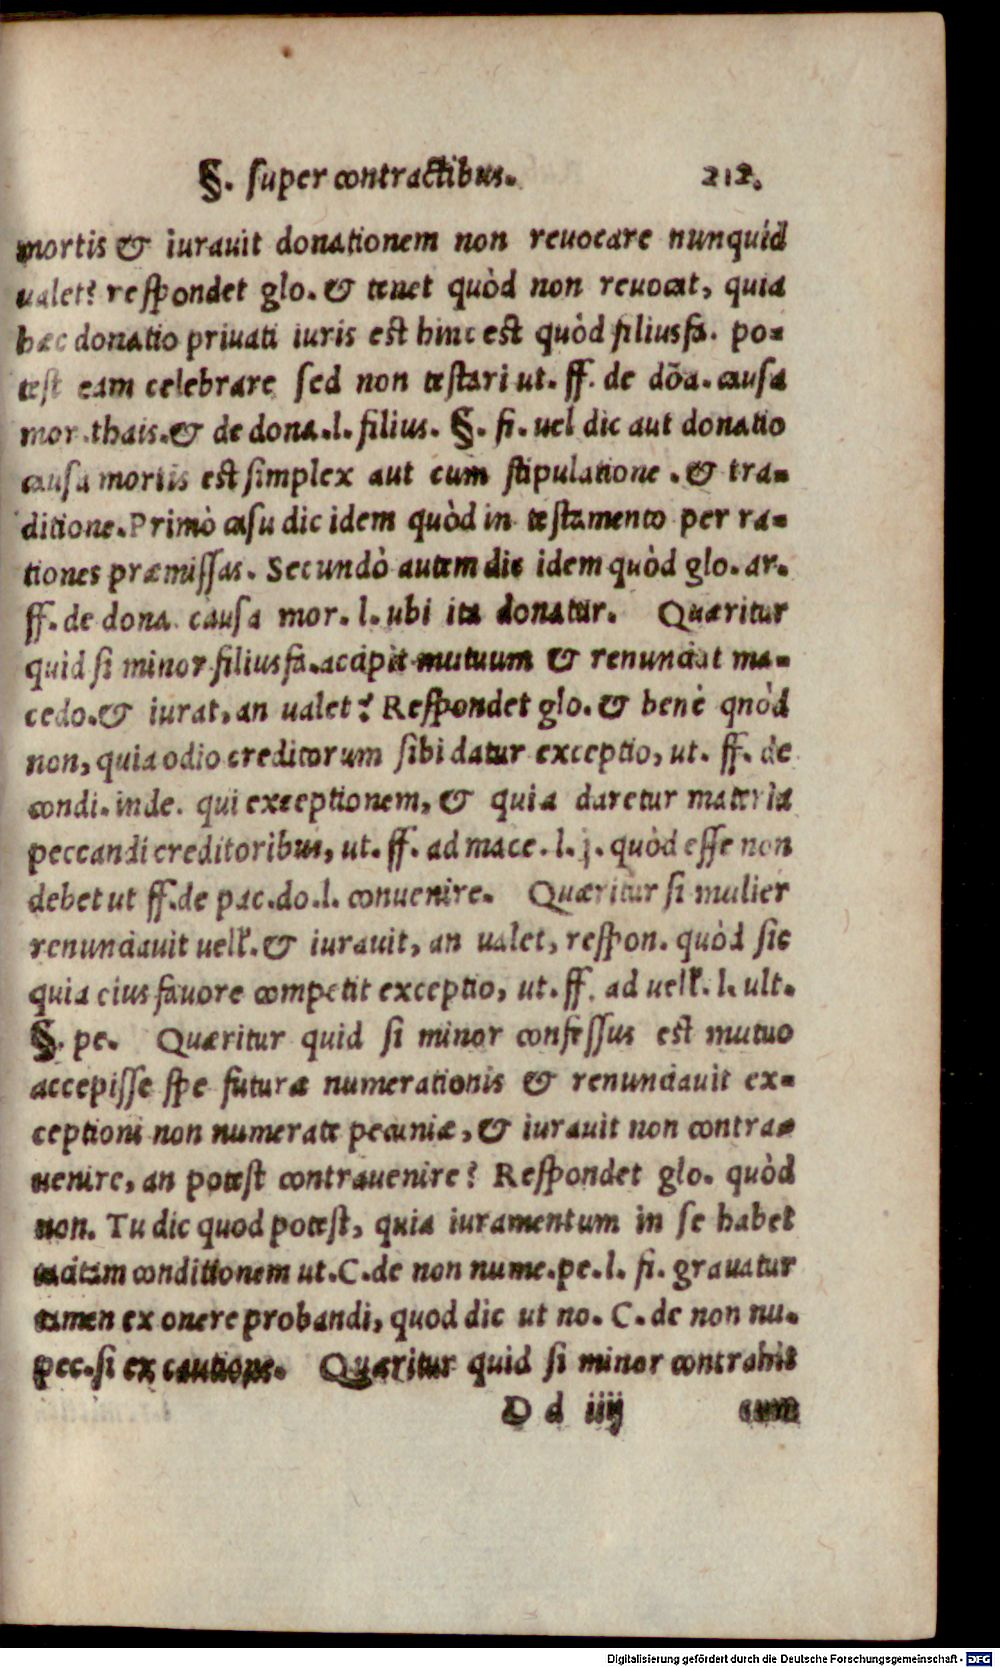 §. super contractibus. 212.
mortis & iurauit donationem non reuocare nunquid
ualet? respondet glo. & tenet quòd non reuocat, quia
hæc donatio priuati iuris est hinc est quòd filiusfa. po-
test eam celebrare sed non testari ut. ff. de dõa. causa
mor. thais. & de dona. l. filius. §. fi. uel dic aut donatio
causa mortis est simplex aut cum stipulatione. & tra-
ditione. Primò casu dic idem quòd in testamento per ra-
tiones præmissas. Secundò autem dic idem quòd glo. ar.
ff. de dona. causa mor. l. ubi ita donatur. Quæritur
quid si minor filiusfa. accipit mutuum & renunciat ma-
cedo. & iurat, an ualet? Respondet glo. & benè qnòd
non, quia odio creditorum sibi datur exceptio, ut. ff. de
condi. inde. qui exceptionem, & quia daretur materia
peccandi creditoribus, ut. ff. ad mace. l. j. quòd esse non
debet ut ff. de pac. do. l. conuenire. Quæritur si mulier
renunciauit uell. & iurauit, an ualet, respon. quòd sic
quia eius fauore competit exceptio, ut. ff. ad uell. l. ult.
§. pe. Quæritur quid si minor confessus est mutuo
accepisse spe futuræ numerationis & renunciauit ex-
ceptioni non numeratæ pecuniæ, & iurauit non contra-
uenire, an potest contrauenire? Respondet glo. quòd
non. Tu dic quod potest, quia iuramentum in se habet
tacitam conditionem ut. C. de non nume. pe. l. fi. grauatur
tamen ex onere probandi, quod dic ut no. C. de non nu.
pec. si ex cautione. Quæritur quid si minor contrahit
D d iiij cum
Digitalisierung gefördert durch die Deutsche Forschungsgemeinschaft - DFG